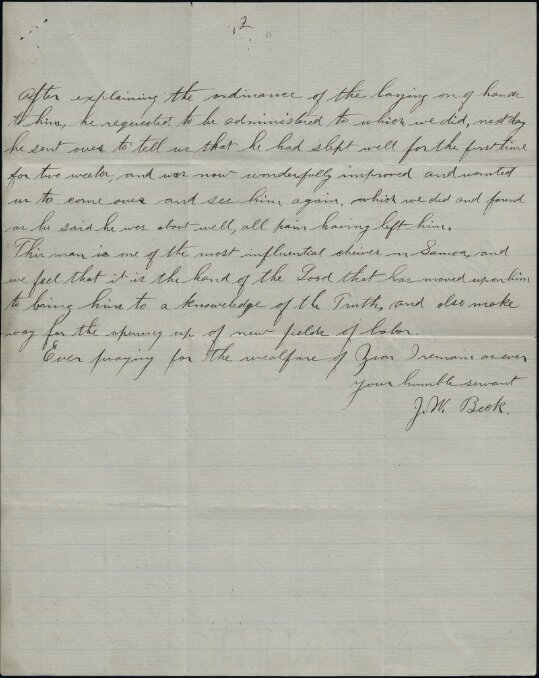 2
After explaining the ordinance of the laying on of hands
to him, he requested to be administered to which we did, next day
he sent over to tell us that he had slept well for the first time
for two weeks, and was now wonderfully improved and wanted
us to come over and see him again, which we did and found
as he said he was about well, all pain having left him.
This man is one of the most influential cheives in Samoa, and
we feel that it is the hand of the Lord that has moved upon him
to bring him to a knowledge of the Truth, and also make
way for the opening up of new fields of labor.
Ever praying for the wealfare of Zion I remain as ever
your humble servant
J. W. Beck.